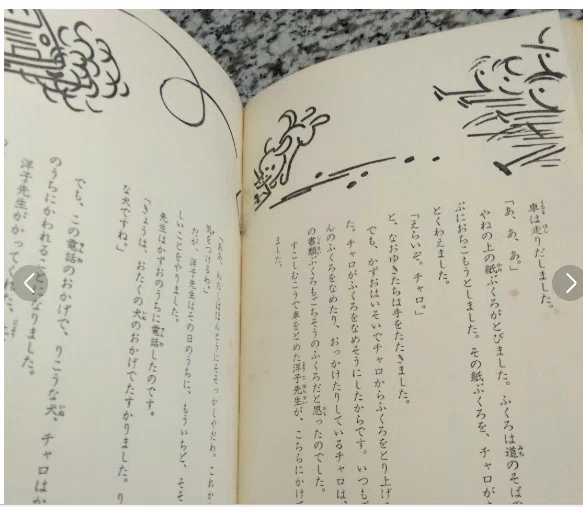 車は走りだしました。
「あ、あ、あ。」
やねの上の紙ぶくろがとびました。ふくろは道のそばの
ぶにおちこもうとしました。その紙ぶくろを、チャロがさ
とくわえました。
「えらいぞ。チャロ。」
と、なおゆきたちは手をたたきました。
でも、かずおはいそいでチャロからふくろをとり上げ
た。チャロがふくろをなめそうにしたからです。いつもご
んのふくろをなめたり、おっかけたりしているチャロは、
の書類ぶくろもごちそうのふくろだと思ったのでした。
すこしむこうで車をとめた洋子先生が、こちらにかけて
ました。
「ああ、わたしはほんとうにそそっかしやだわ。これか
気をつけるわ。」
だが、洋子先生はその日のうちに、もういちど、そそ
しいことをやりました。
先生はかずおのうちに電話したのです。
「きょうは、おたくの犬のおかげでたすかりました。り
な犬ですね。」
でも、この電話のおかげで、りこうな犬、チャロはか
のうちにかわれることになりました。
洋子先生がかってくれた、